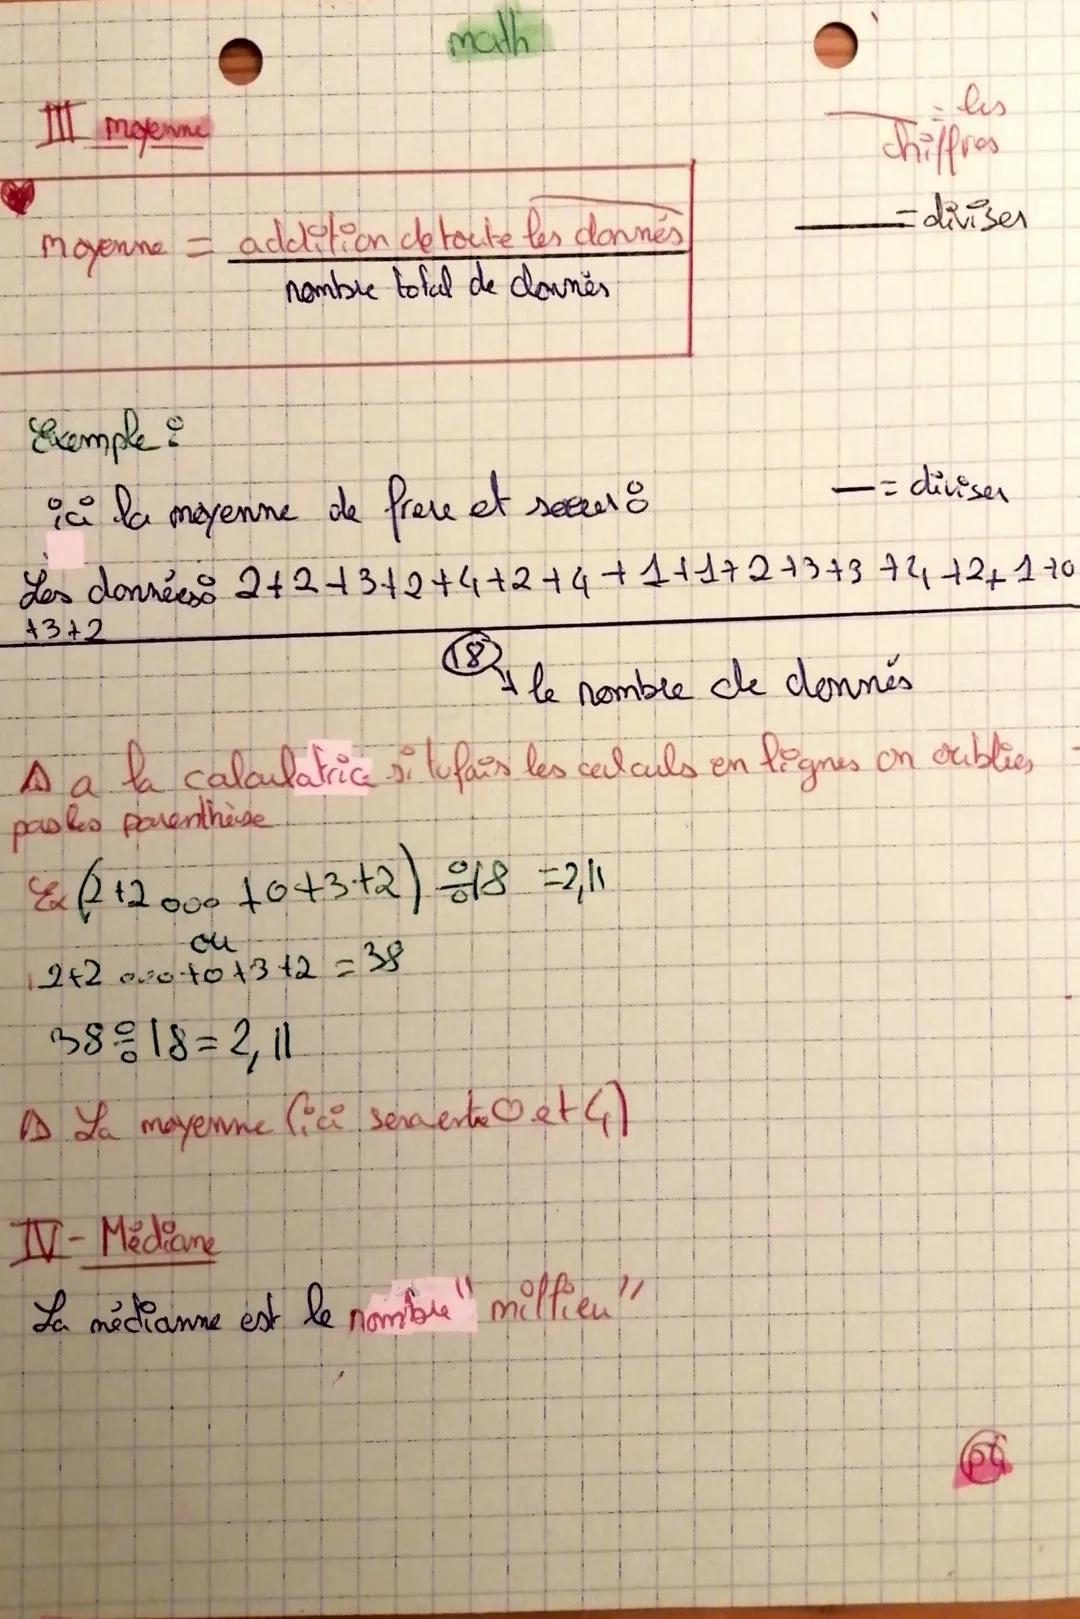 math
III moyenne
— = les
chiffres
— = diviser
moyenne = addition de toute les donnés
nombre total de donnés
Exemple :
ici la moyenne de frere et soeur :
— = diviser
Les données : 2+2+3+2+4+2+4+1+1+2+3+3+4+2+1+0
+3+2
18
→ le nombre de donnés
⚠ a la calculatric si tu fais les calculs en lignes on oublies
pas les parenthèse
Ex (2+2 ... +0+3+2) ÷ 18 = 2,11
ou
2+2 ... +0+3+2 = 38
38 ÷ 18 = 2,11
⚠ La moyenne (ici sera entre 0 et 4)
IV - Médiane
La médianne est le nombre "millieu"